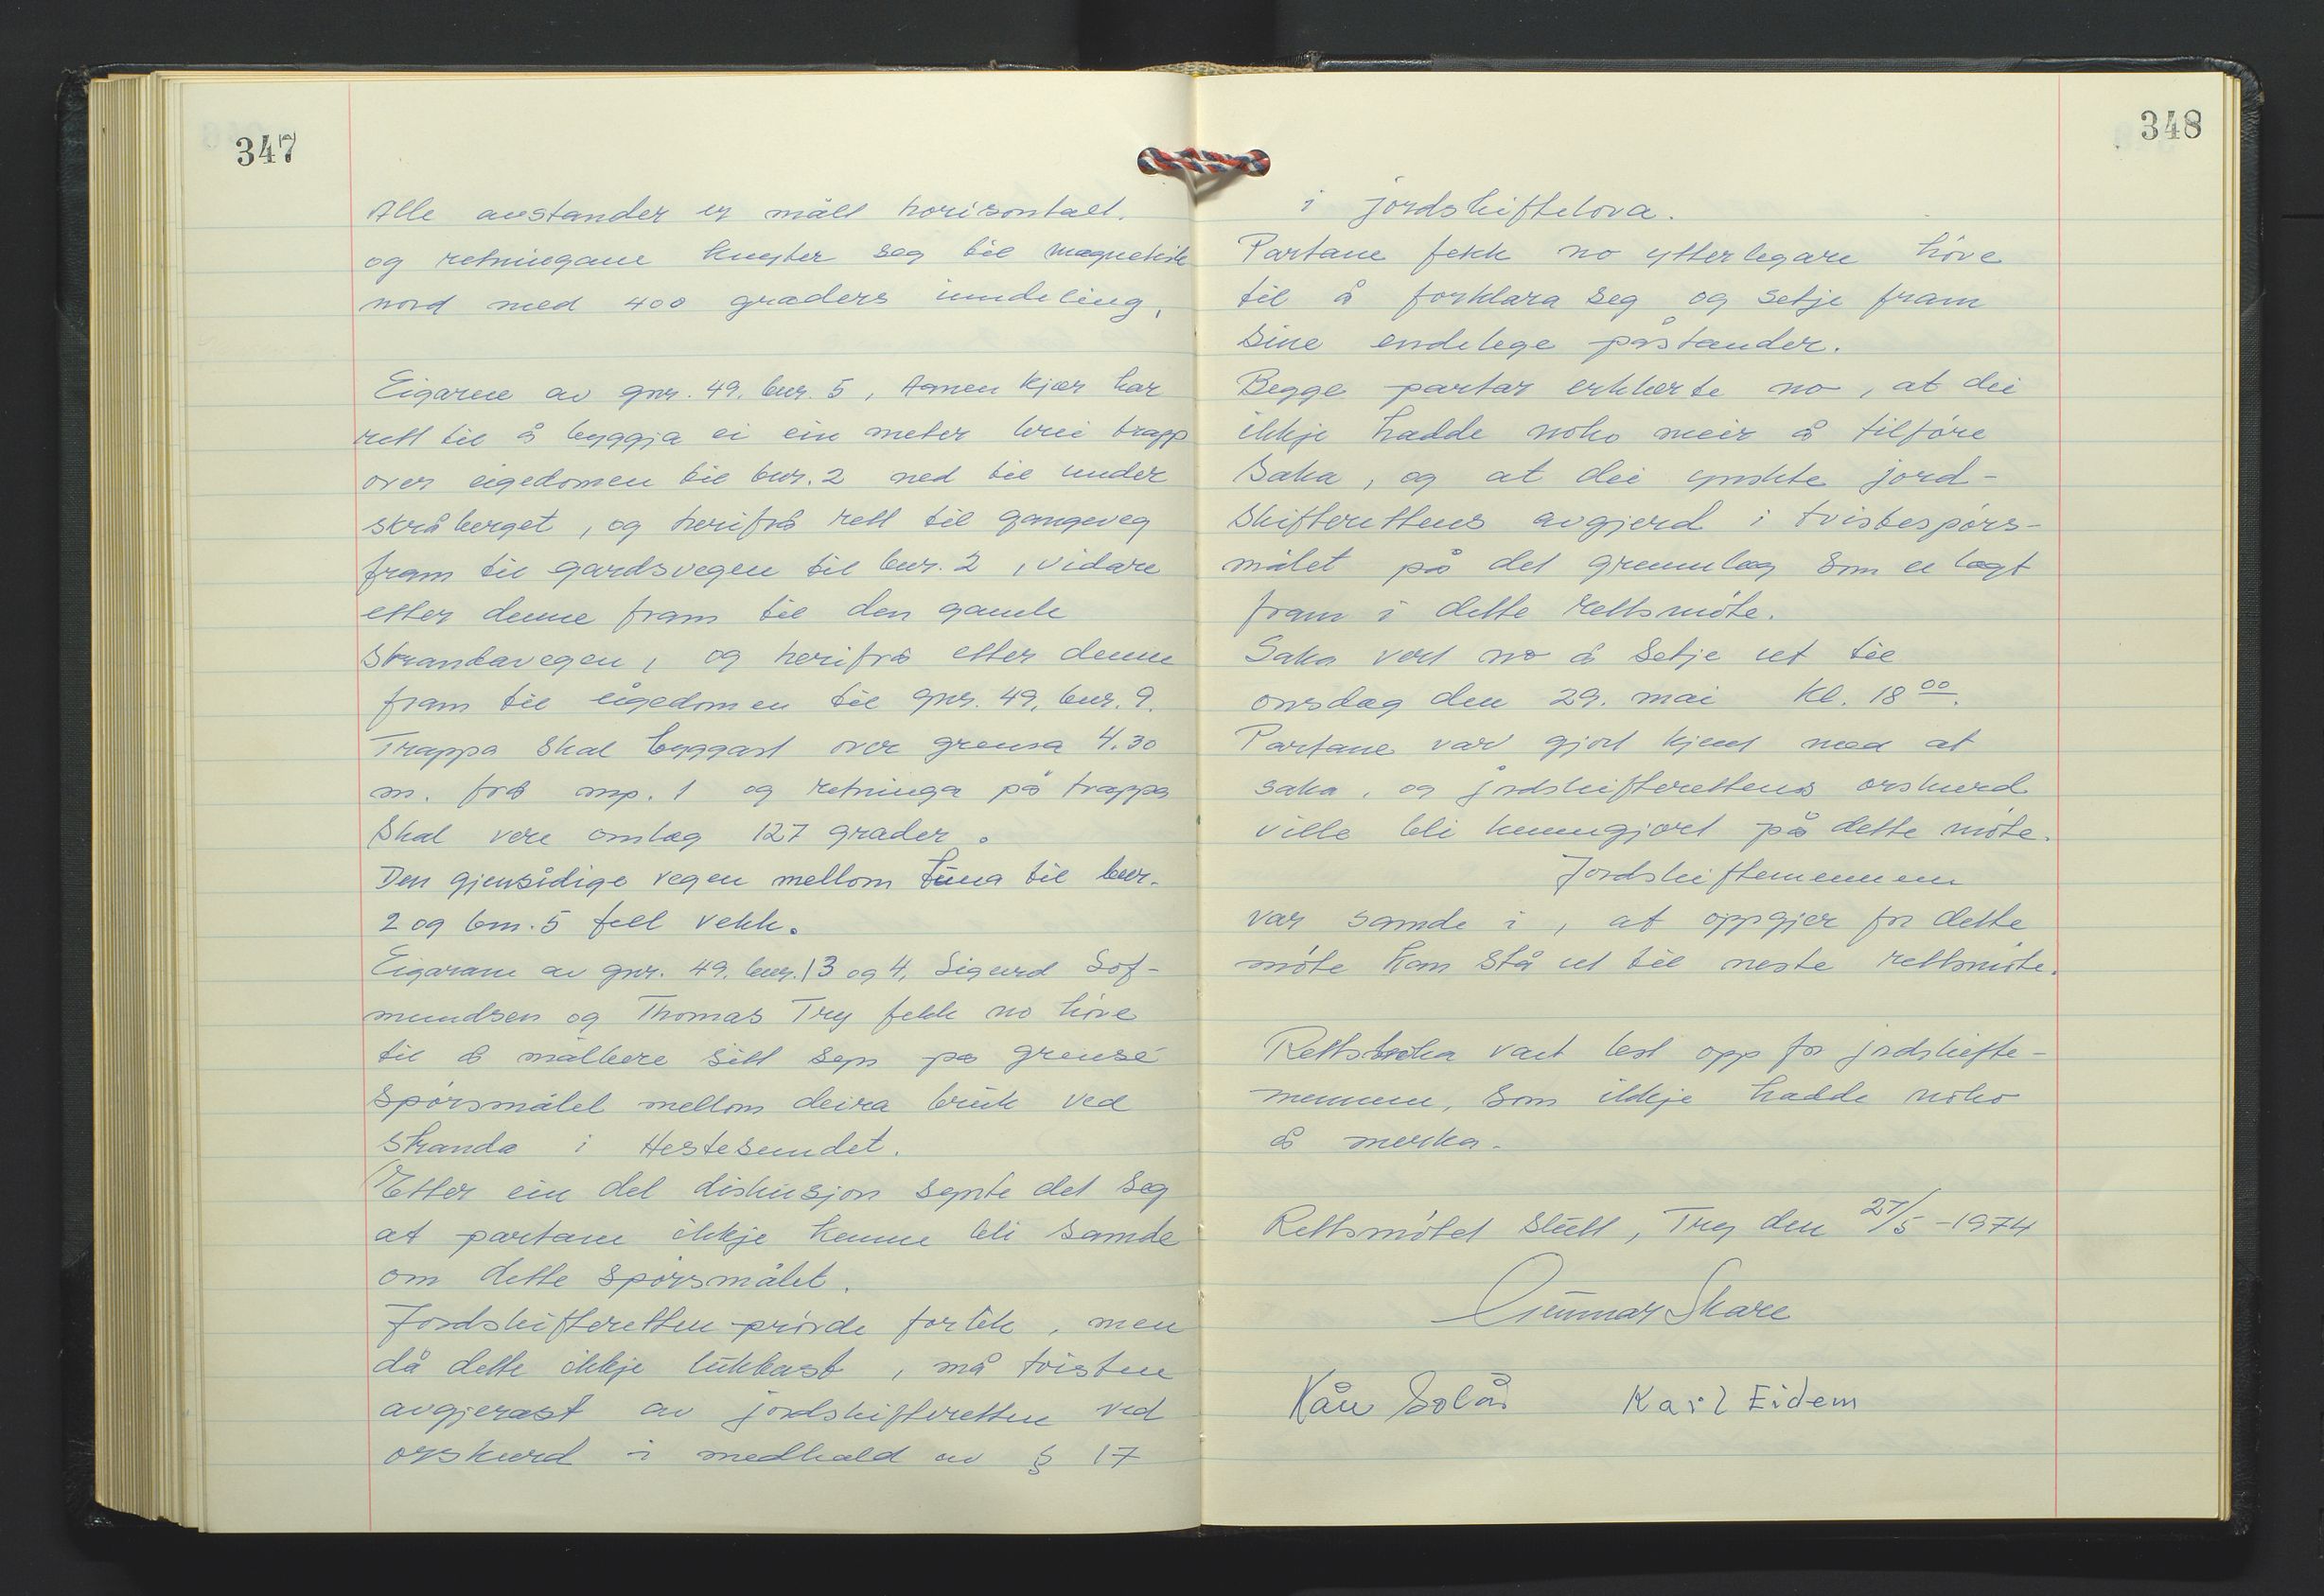 347
Alle avstander er målt horisontalt.
og retningane knyter seg til magnetisk
nord med 400 graders inndeling.
Eigaren av gnr. 49. bnr. 5, Agnen Kjær har
rett til å byggja ei ein meter brei trapp
over eigedomen til bnr. 2 ned til under
skråberget, og herifrå rett til gangeveg
fram til gardsvegen til bnr. 2, vidare
etter denne fram til den gamle
Strandavegen, og herifrå etter denne
fram til eigedomen til gnr. 49, bnr. 9.
Trappa skal byggast over grensa 4.30
m. frå mp. 1 og retninga på trappa
skal vere omlag 127 grader.
Den gjensidige vegen mellom tuna til bnr.
2 og bnr. 5 fell vekk.
Eigarane av gnr. 49. bnr. 13 og 4, Sigurd Sof-
mundsen og Thomas Try fekk no höve
til å målbere sitt syn på grense
spörsmålet mellom deira bruk ved
stranda i Hestesundet.
Etter ein del diskusjon synte det seg
at partane ikkje kunne bli samde
om dette spörsmålet.
Jordskifteretten prövde forlik, men
då dette ikkje lukkast, må tvisten
avgjerast av jordskifteretten ved
orskurd i medhald av § 17
348
i jordskiftelova.
Partane fekk no ytterlegare höve
til å forklara seg og setje fram
sine endelege påstander.
Begge partar erklærte no, at dei
ikkje hadde noko meir å tilföre
saka, og at dei ynskte jord-
skifterettens avgjerd i tvistespörs-
målet på det grunnlag som er lagt
fram i dette rettsmöte.
Saka vert no å setje ut til
onsdag den 29. mai kl. 18 00.
Partane var gjort kjent med at
saka, og jordskifterettens orskurd
ville bli kunngjort på dette möte.
Jordskiftemennene
var samde i, at oppgjer for dette
möte kan stå ut til neste rettsmöte.
Rettsboka vart lest opp for jordskifte-
mennene, som ikkje hadde noko
å merka.
Rettsmötet slutt, Try den 27/5 -1974
Gunnar Skare
Kåre Solås Karl Eidem